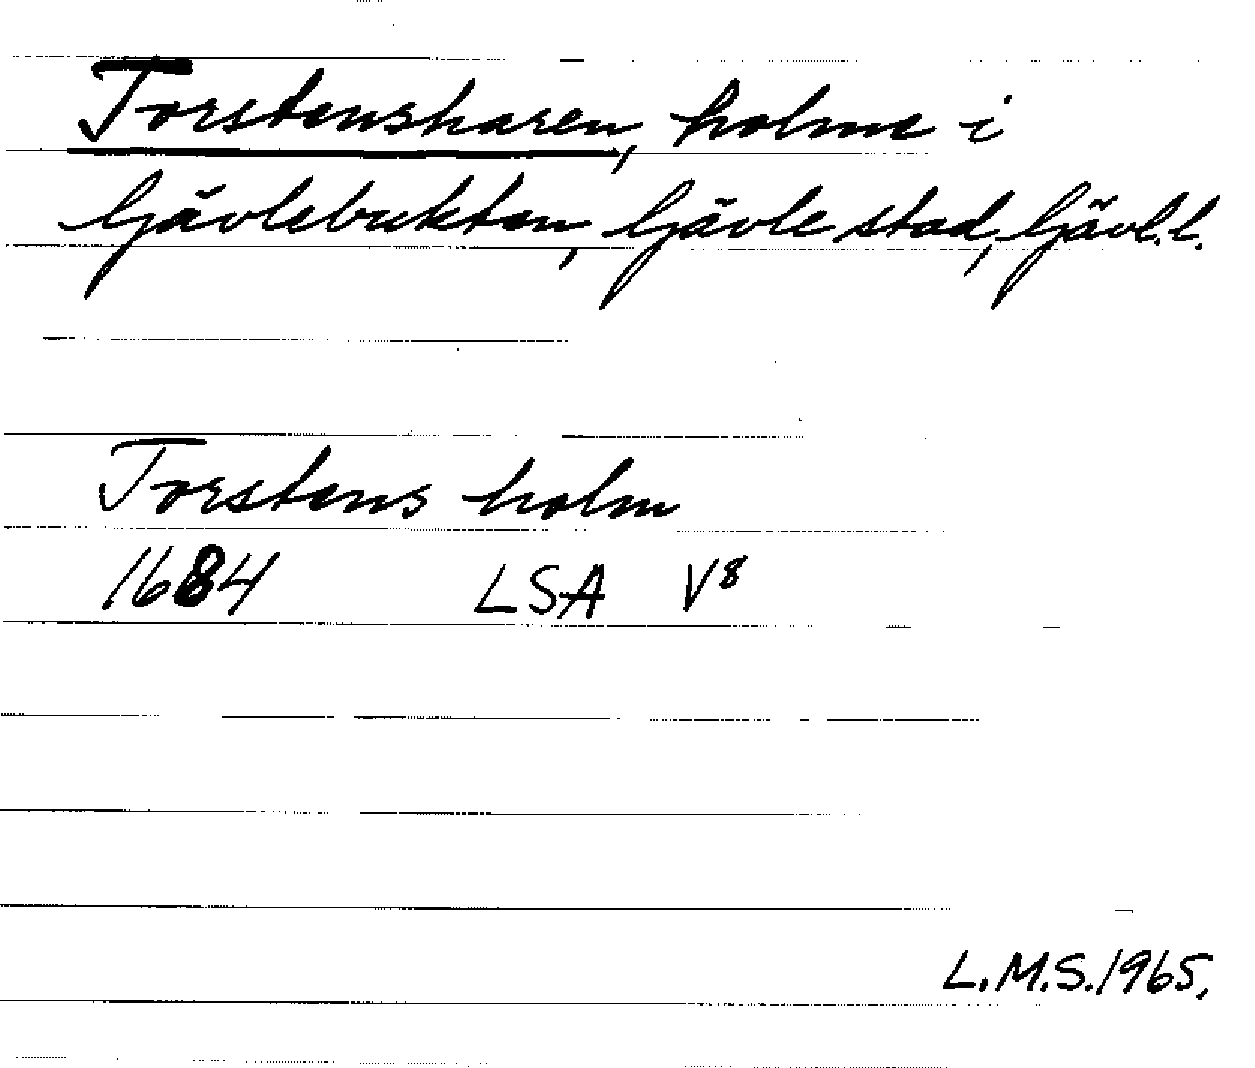 Torstensharen, holme i
Gävlebukten, Gävle stad, Gävl.l.
Torstens holm
1684 LSA V8
L.M.S. 1965,